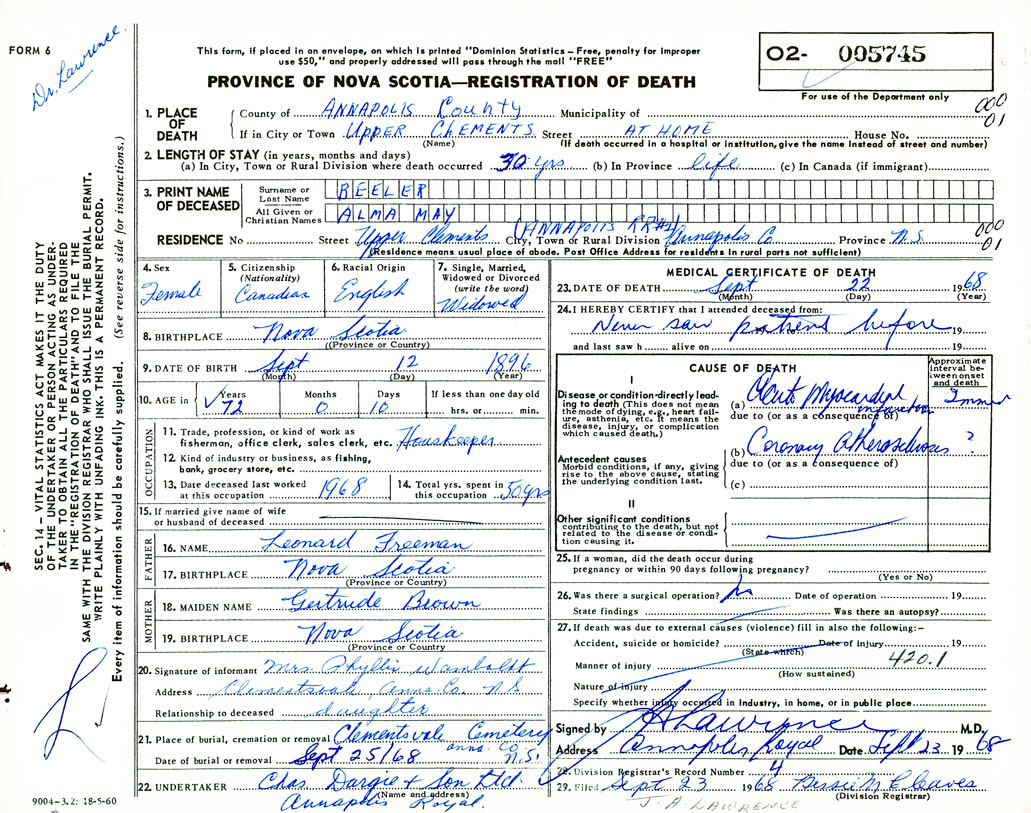 FORM 6
Dr. Lawrence.
This form, if placed in an envelope, on which is printed "Dominion Statistics – Free, penalty for improper
use $50," and properly addressed will pass through the mail "FREE"
PROVINCE OF NOVA SCOTIA—REGISTRATION OF DEATH
O2- 005745
For use of the Department only
000
01
1. PLACE OF DEATH
County of ANNAPOLIS County Municipality of
If in City or Town UPPER CLEMENTS Street AT HOME House No.
(Name) (If death occurred in a hospital or institution, give the name instead of street and number)
2. LENGTH OF STAY (in years, months and days)
(a) In City, Town or Rural Division where death occurred 30 yrs (b) In Province life (c) In Canada (if immigrant)
3. PRINT NAME OF DECEASED
Surname or Last Name BEELER
All Given or Christian Names ALMA MAY
(ANNAPOLIS RR#1)
RESIDENCE No Street Upper Clements City, Town or Rural Division Annapolis Co. Province N.S.
000
01
(Residence means usual place of abode. Post Office Address for residents in rural parts not sufficient)
4. Sex
Female
5. Citizenship
(Nationality)
Canadian
6. Racial Origin
English
7. Single, Married,
Widowed or Divorced
(write the word)
Widowed
8. BIRTHPLACE Nova Scotia
((Province or Country)
9. DATE OF BIRTH Sept 12 1896
(Month) (Day) (Year)
10. AGE in Years Months Days If less than one day old
72 0 10 hrs. or min.
OCCUPATION
11. Trade, profession, or kind of work as
fisherman, office clerk, sales clerk, etc. Houskeeper
12. Kind of industry or business, as fishing,
bank, grocery store, etc.
13. Date deceased last worked
at this occupation 1968
14. Total yrs. spent in
this occupation 50 yrs
15. If married give name of wife
or husband of deceased
FATHER
16. NAME Leonard Freeman
17. BIRTHPLACE Nova Scotia
(Province or Country)
MOTHER
18. MAIDEN NAME Gertrude Brown
19. BIRTHPLACE Nova Scotia
(Province or Country
20. Signature of informant Mrs. Phyllis Wamboldt
Address Clementsvale, Anna. Co. N.S
Relationship to deceased daughter
21. Place of burial, cremation or removal Clementsvale Cemetery
anna. Co. N.S.
Date of burial or removal Sept 25/68
22. UNDERTAKER Chas Dargie & Son Ltd
(Name and address)
Annapolis Royal.
MEDICAL CERTIFICATE OF DEATH
23. DATE OF DEATH Sept 22 1968
(Month) (Day) (Year)
24. I HEREBY CERTIFY that I attended deceased from:
Never saw patient before 19
and last saw h alive on 19
CAUSE OF DEATH
Approximate
interval be-
tween onset
and death
I
Disease or condition directly lead-
ing to death (This does not mean
the mode of dying, e.g., heart fail-
ure, asthenia, etc. It means the
disease, injury, or complication
which caused death.)
(a) Acute Myocardial infarction Immed
due to (or as a consequence of)
(b) Coronary Atherosclerosis ?
due to (or as a consequence of)
(c)
Antecedent causes
Morbid conditions, if any, giving
rise to the above cause, stating
the underlying condition last.
II
Other significant conditions
contributing to the death, but not
related to the disease or condi-
tion causing it.
25. If a woman, did the death occur during
pregnancy or within 90 days following pregnancy?
(Yes or No)
26. Was there a surgical operation? No Date of operation 19
State findings Was there an autopsy?
27. If death was due to external causes (violence) fill in also the following:–
Accident, suicide or homicide? Date of injury 19
(State which)
420.1
Manner of injury
(How sustained)
Nature of injury
Specify whether injury occurred in industry, in home, or in public place
Signed by Lawrence M.D.
Address Annapolis Royal Date Sept 23 1968
28. Division Registrar's Record Number 4
29. Filed Sept. 23 1968 Bessie M Cleaves
(Division Registrar)
J. A. LAWRENCE
SEC. 14 – VITAL STATISTICS ACT MAKES IT THE DUTY
OF THE UNDERTAKER OR PERSON ACTING AS UNDER-
TAKER TO OBTAIN ALL THE PARTICULARS REQUIRED
IN THE "REGISTRATION OF DEATH" AND TO FILE THE
SAME WITH THE DIVISION REGISTRAR WHO SHALL ISSUE THE BURIAL PERMIT.
WRITE PLAINLY WITH UNFADING INK. THIS IS A PERMANENT RECORD.
Every item of information should be carefully supplied. (See reverse side for instructions.)
9004–3.2: 18-5-60